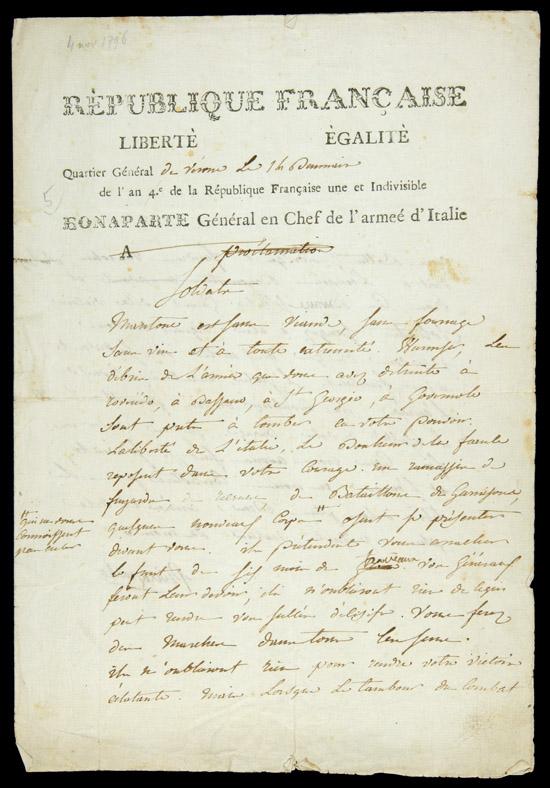 4 nov 1796
RÈPUBLIQUE FRANÇAISE
LIBERTÈ ÈGALITÈ
Quartier Général de vérone Le 14 Brumair
de l'an 4.e de la République Française une et Indivisible
5
BONAPARTE Général en Chef de l'armeé d'Italie
A proclamation
Soldats
Mantoue est sans viande, sans fourrage
sans vin et à toute extremité. Wurmser, Les
débris de L'armée que vous avez détruite à
roveredo, à Bassano, à St Georgio, à Governolo
sont prets à tomber en votre pouvoir.
La liberté de L'italie, Le Bonheur de la france
reposent dans votre courage. un ramassis de
fuyards de recrues, de Bataillons de Garnisons,
quelques nouveaux Corps # osent se présenter
# qui ne vous
connoissent
pas encor
devant vous. ils prétendent vous arracher
le fruit de six mois de travaux vos Généraux
feront Leur devoir, ils n'oublieront rien de ce qui
peut rendre vos succès décisifs. Vous ferez
des Marches dans tous Les sens.
ils n'oublieront rien pour rendre votre victoire
éclatante. Mais Lorsque Le tambour du combat